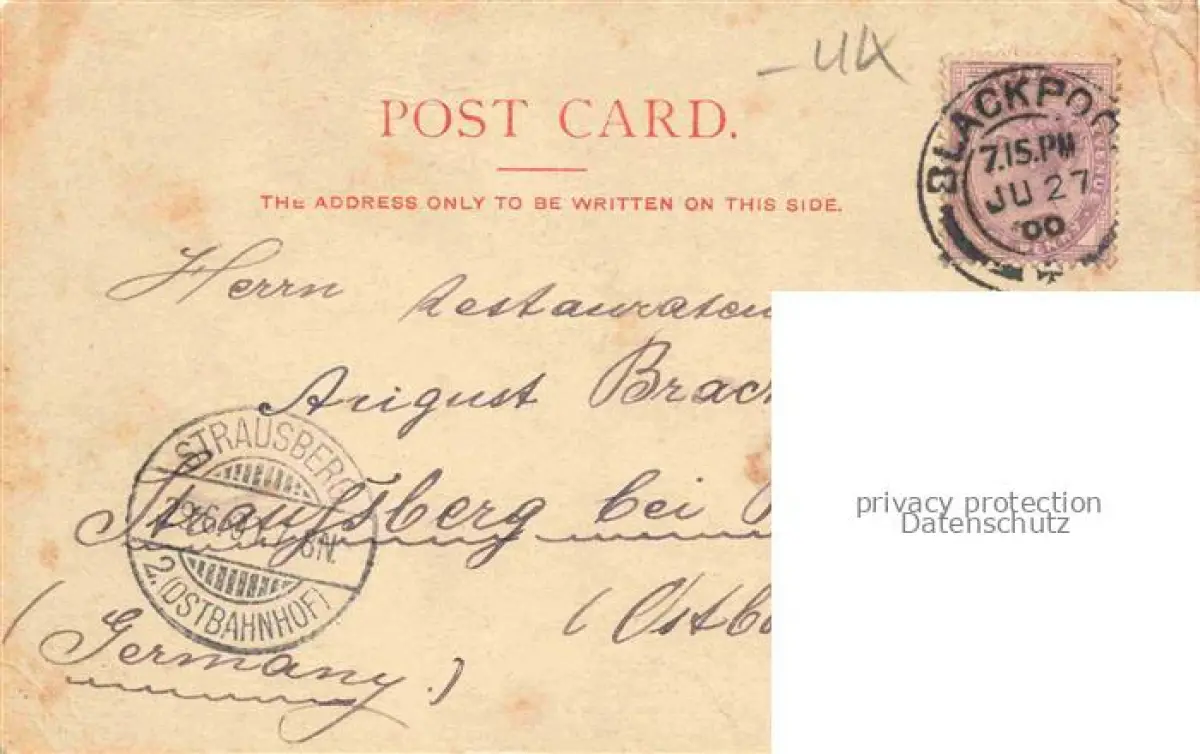 - UK
POST CARD.
THE ADDRESS ONLY TO BE WRITTEN ON THIS SIDE.
BLACKPOO
7.15.PM
JU 27
00
Herrn Restaurateu
August Brac
Straußberg bei
(Ostb
(Germany.)
STRAUSBERG
2.(OSTBAHNHOF)
privacy protection
Datenschutz